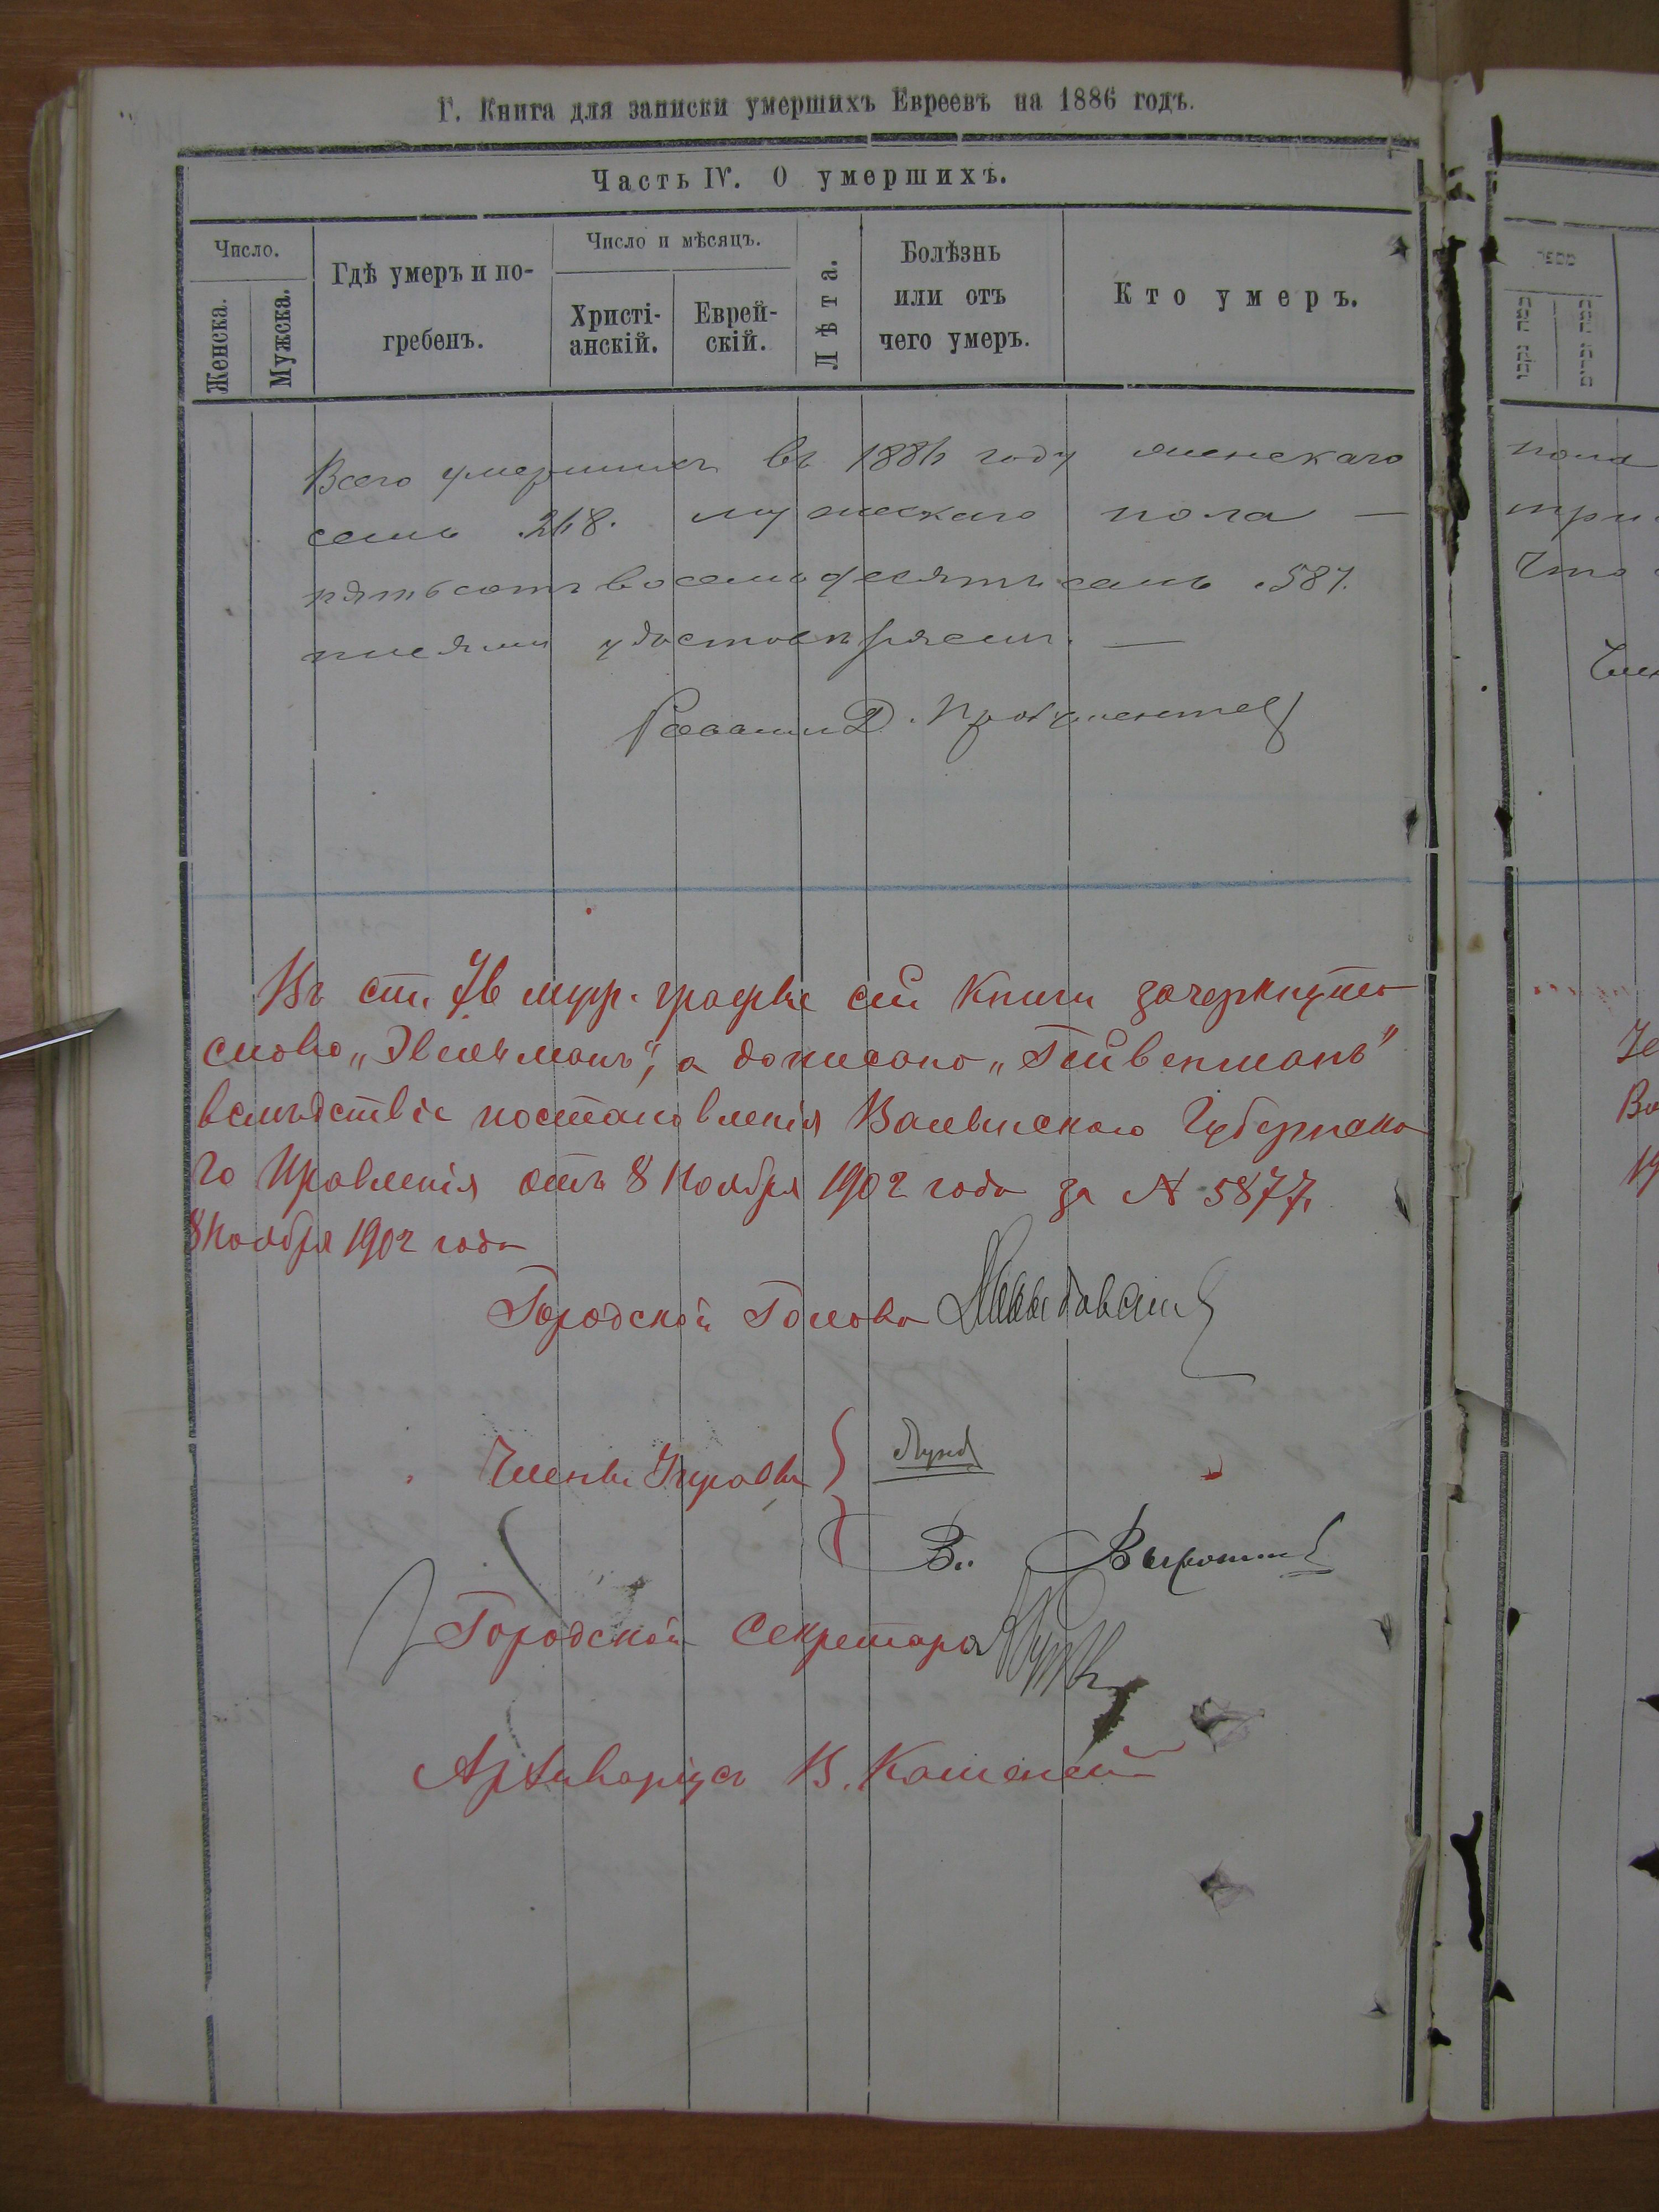 Г. Книга для записки умершихъ Евреевъ на 1886 годъ.
Часть IV. О умершихъ.
Число.
Женска.
Мужска.
Гдѣ умеръ и по-
гребенъ.
Число и мѣсяцъ.
Христі-
анскій.
Еврей-
скій.
Лѣта.
Болѣзнь
или отъ
чего умеръ.
Кто умеръ.
Всего умершихъ въ 1886 году женскаго
семь 268. мужескаго пола —
пятьсотъ восемьдесятъ семь 587.
писями удостовѣряемъ. —
Раввинъ Д.
Въ ст. 76 муж. графѣ сей книги зачеркнуто
слово „ “, а дописано „Гейвенманъ“
вслѣдствіе постановленія Губернска
го Правленія отъ 8 Ноября 1902 года за № 5877.
8 Ноября 1902 года
Городской Голова
Члены Управы
Городской Секретарь
Архиваріусъ В.
пола
три
Что
מספר